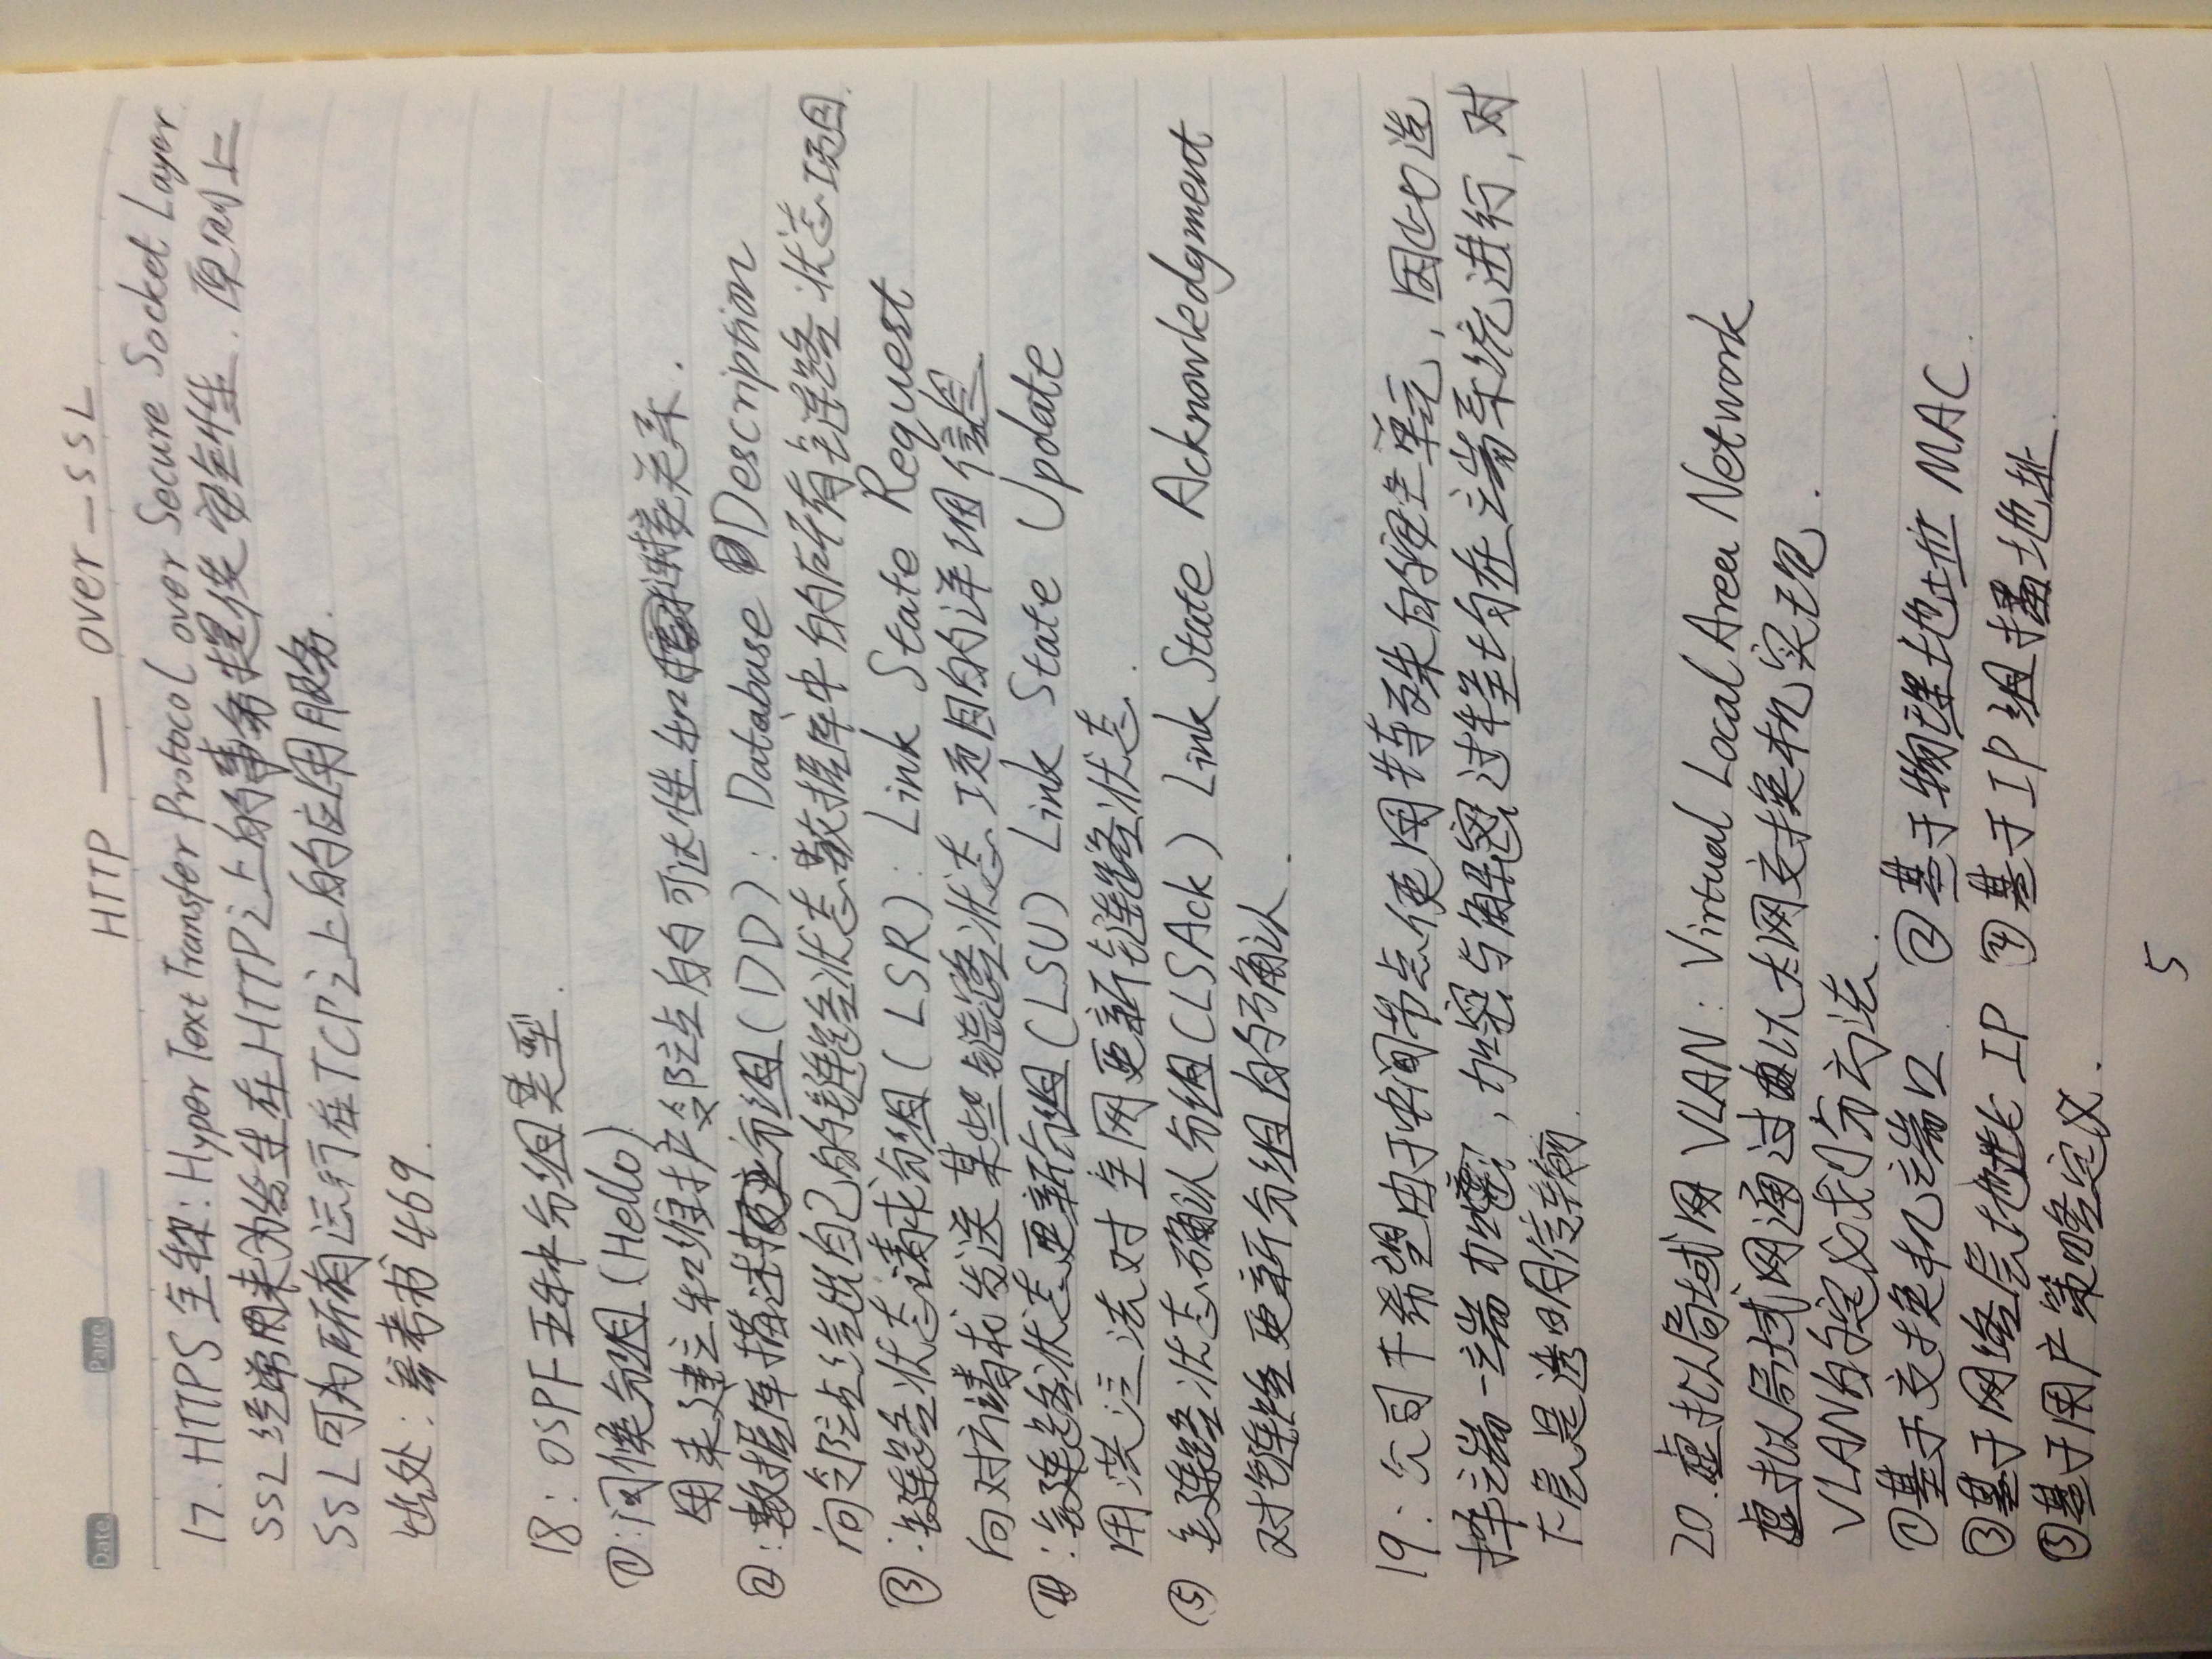 Date. Page.
HTTP — over — SSL
17. HTTPS 全称: Hyper Text Transfer Protocol over Secure Socket Layer
SSL经常用来为发生在HTTP之上的事务提供安全性. 原则上
SSL可为所有运行在TCP之上的应用服务.
出处: 参考书469.
18: OSPF五种分组类型.
①:问候分组(Hello)
用来建立和维护邻站的可达性和连接关系.
②:数据库描述分组(DD): Database Description
向邻站给出自己的链路状态数据库中的所有链路状态项目.
③:链路状态请求分组(LSR): Link State Request
向对方请求发送某些链路状态项目的详细信息
④:链路状态更新分组(LSU) Link State Update
用洪泛法对全网更新链路状态.
⑤ 链路状态确认分组(LSAck) Link State Acknowledgment
对链路更新分组的确认.
19: 公司不希望由于中间节点使用特殊的安全单元, 因此选
择端-端加密, 加密与解密过程均在端系统进行, 对
下层是透明传输.
20. 虚拟局域网 VLAN: Virtual Local Area Network
虚拟局域网通过以太网交换机实现.
VLAN的定义划分方法.
①基于交换机端口. ②基于物理地址 MAC.
③基于网络层地址 IP ④基于IP组播地址.
⑤基于用户策略定义.
5